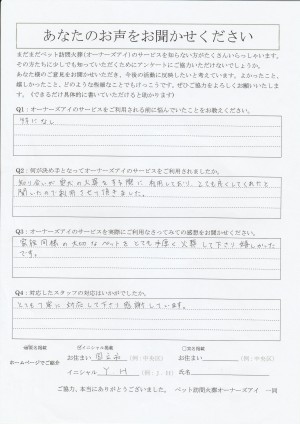 あなたのお声をお聞かせください
まだまだペット訪問火葬(オーナーズアイ)のサービスを知らない方がたくさんいらっしゃいます。
その方たちに少しでも知っていただくためにアンケートにご協力いただけないでしょうか。
あなた様のご意見をお聞かせいただき、今後の活動に反映したいと考えています。よかったこと、
嬉しかったこと、どのような些細なことでもけっこうです。ぜひご協力をよろしくお願いいたします。
(できるだけ具体的に書いていただけると助かります)
Q1：オーナーズアイのサービスをご利用される前に悩んでいたことをお教えください。
特になし
Q2：何が決め手となってオーナーズアイのサービスをご利用されましたか。
知り合いが愛犬の火葬をする際に利用しており、とても良くしてくれたと
聞いたので利用させて頂きました。
Q3：オーナーズアイのサービスを実際にご利用なさってみての感想をお聞かせください。
家族同様の大切なペットをとても手厚く火葬して下さり嬉しかった
です。
Q4：対応したスタッフの対応はいかがでしたか。
とても丁寧に対応して下さり感謝しています。
実名掲載 イニシャル掲載 匿名掲載
ホームページでご紹介 お住まい 国立市 (例：中央区) お住まい (例：中央区)
イニシャル Y H (例：J．H) 氏名
ご協力、本当にありがとうございました。 ペット訪問火葬オーナーズアイ 一同